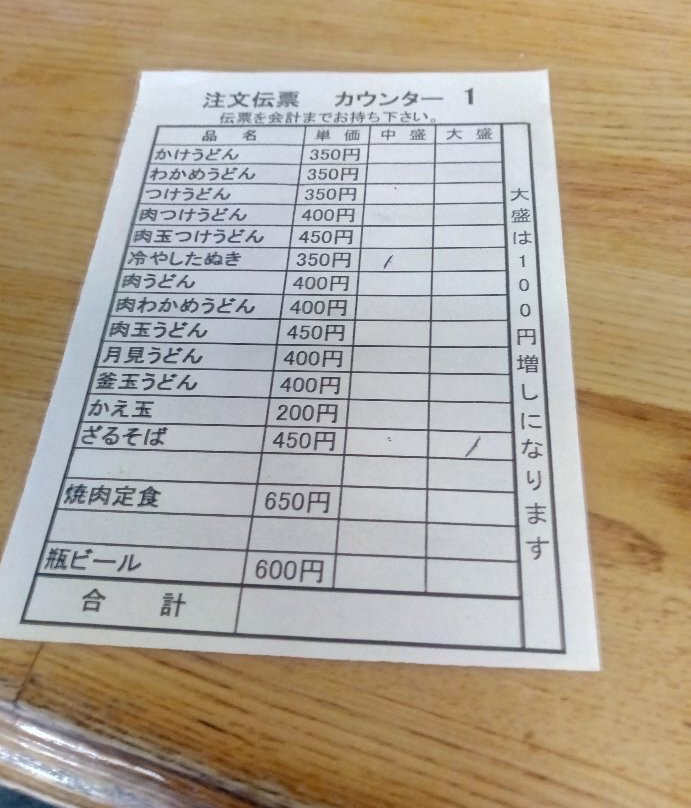 注文伝票 カウンター 1
伝票を会計までお持ち下さい。
品名 単価 中盛 大盛
かけうどん 350円
わかめうどん 350円
つけうどん 350円
肉つけうどん 400円
肉玉つけうどん 450円
冷やしたぬき 350円 /
肉うどん 400円
肉わかめうどん 400円
肉玉うどん 450円
月見うどん 400円
釜玉うどん 400円
かえ玉 200円
ざるそば 450円 /
焼肉定食 650円
瓶ビール 600円
合計
大盛は100円増しになります